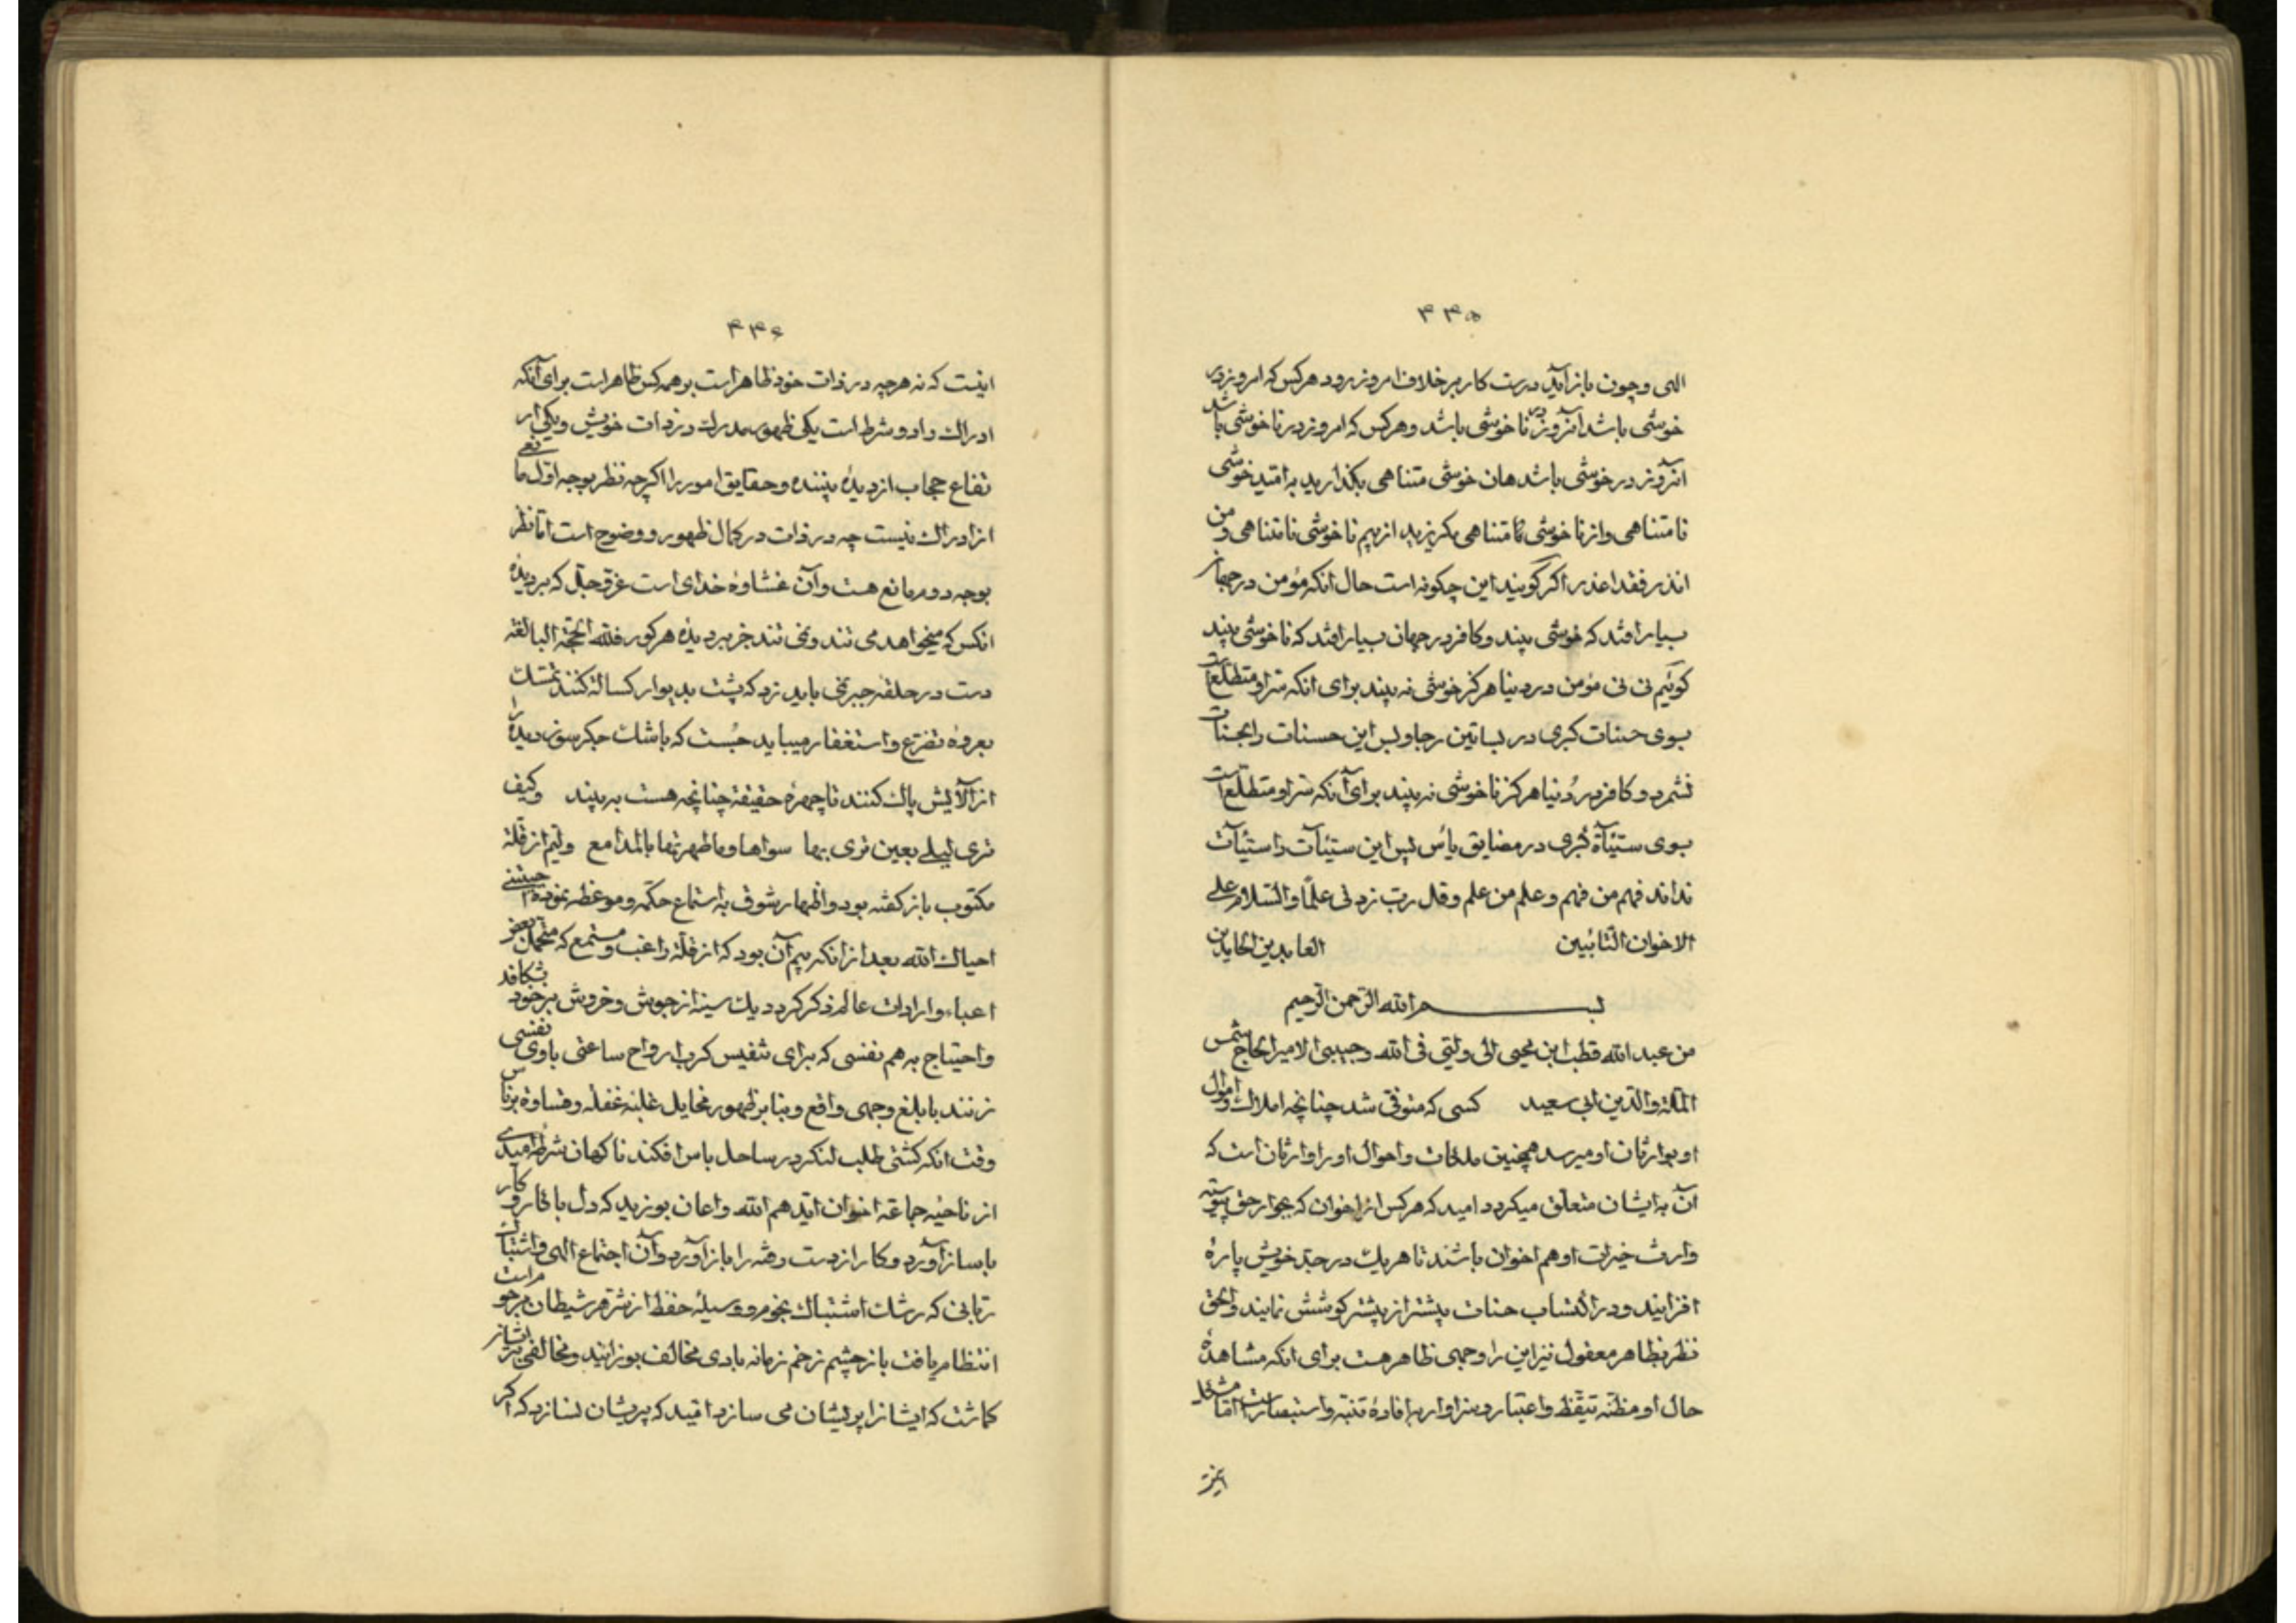 ۴۴۵
الهی و چون بازآید درست کار بر خلاف امروز رود هرکس که امروز در
خوشی باشد آنروز در ناخوشی باشد و هرکس که امروز در ناخوشی باشد
آنروز در خوشی باشد هان خوشی متناهی بگذارید به امید خوشی
نامتناهی و از ناخوشی متناهی بگریزید از بیم ناخوشی نامتناهی و من
انذر فقد اعذر اگر گویند این چگونه است حال آنکه مؤمن در جهان
بسیار افتد که خوشی بیند و کافر در جهان بسیار افتد که ناخوشی بیند
گوئیم نی نی مؤمن در دنیا هرگز خوشی نه بیند برای انکه سر او متطلع است
بوی حسنات کبری در بساتین رجا و پس این حسنات را حسنات
نشمرد و کافر در دنیا هرگز ناخوشی نه بیند برای آنکه سر او متطلع است
بوی سیئآة کبری در مضایق یأس پس این سیئات را سیئات
نداند فهم من فهم و علم من علم و قل رب زدنی علمًا و السّلام علی
الاخوان التّائبین العابدین الحامدین
بسم الله الرّحمن الرّحیم
من عبد الله قطب ابن محیی الی ولیّی فی الله و حبیبی الامیر الحاج شمس
الملّة و الدّین ابی سعید کسی که متوفی شد چنانچه املاک و اموال
او بوارثان او میرسد همچنین ملکات و احوال او را وارثان است که
آن به ایشان متعلّق میگردد امید که هرکس از اخوان که بجوار حق پیوسته
وارث خیرات او هم اخوان باشند تا هر یک در جد خویش پارهٔ
افزایند و در اکتساب حسنات بیشتر از پیشتر کوشش نمایند و الحق
نظر بظاهر معقول نیز این را وجهی ظاهر هست برای انکه مشاهدهٔ
حال او مظنّه تیقّظ و اعتبار و سزاوار به افادهٔ تنبّه و استبصار است امّا مشکل
۴۴۶
اینست که نه هرچه در ذات خود ظاهر است بر همه کس ظاهر است برای آنکه
ادراک را دو شرط است یکی ظهور مدرک در ذات خویش و یکی ار
تفاع حجاب از دیدهٔ بیننده و حقایق امور را اگرچه نظر بوجه اوّل مانعی
از ادراک نیست چه در ذات در کمال ظهور و وضوح است امّا نظر
بوجه دوم مانع هست و آن غشاوهٔ خدای است عزّ و جلّ که بر دیدهٔ
انکس که میخواهد می تند و نمی تند جز بر دیدهٔ هر کور فلله الحجة البالغة
دست در حلقهٔ جبر نمی باید زد که پشت بدیوار کسالة کنند تمسک
بعروهٔ تضرّع و استغفار میباید جُست که باشک جگرسوز دیده را
از آلایش پاک کنند تا چهرهٔ حقیقة چنانچه هست به بیند و کیف
تری لیلی بعین تری بها سواها و ما طهرتها بالمدامع و لم از قلّة
مکتوب باز گفته بود و اظهار شوق به استماع حکمة و موعظه نموده
احیاک الله بعد از آنکه بیم آن بود که از قلّة راغب و مستمع که متحمل بعضی
اعباء واردات عالم ذکر گردد دیک سینه از جوش و خروش بر خود بشکافد
و احتیاج به هم نفسی که برای تنفیس کرب ارواح ساعتی باوی نفسی
زنند بابلغ وجهی واقع و بنا بر ظهور مخایل غلبهٔ غفلة و قساوة بر ناس
وقت آنکه کشتی طلب لنگر در ساحل یاس افکند ناگهان شرطهٔ امیدی
از ناحیهٔ جماعة اخوان ایّدهم الله و اعان بوزید که دل با قارو
باساز آورد و کار از دست رفته را باز آورد و آن اجتماع الهی و اشتباک
ربّانی که رشک اشتباک نجوم و وسیلهٔ حفظ از شرّ هر شیطان
انتظام یافت باز چشم زخم زمانه بادی مخالف بوزانید و مخالفی بر
گماشت که ایشانرا پریشان می سازد امید که پریشان نسازد که اگر